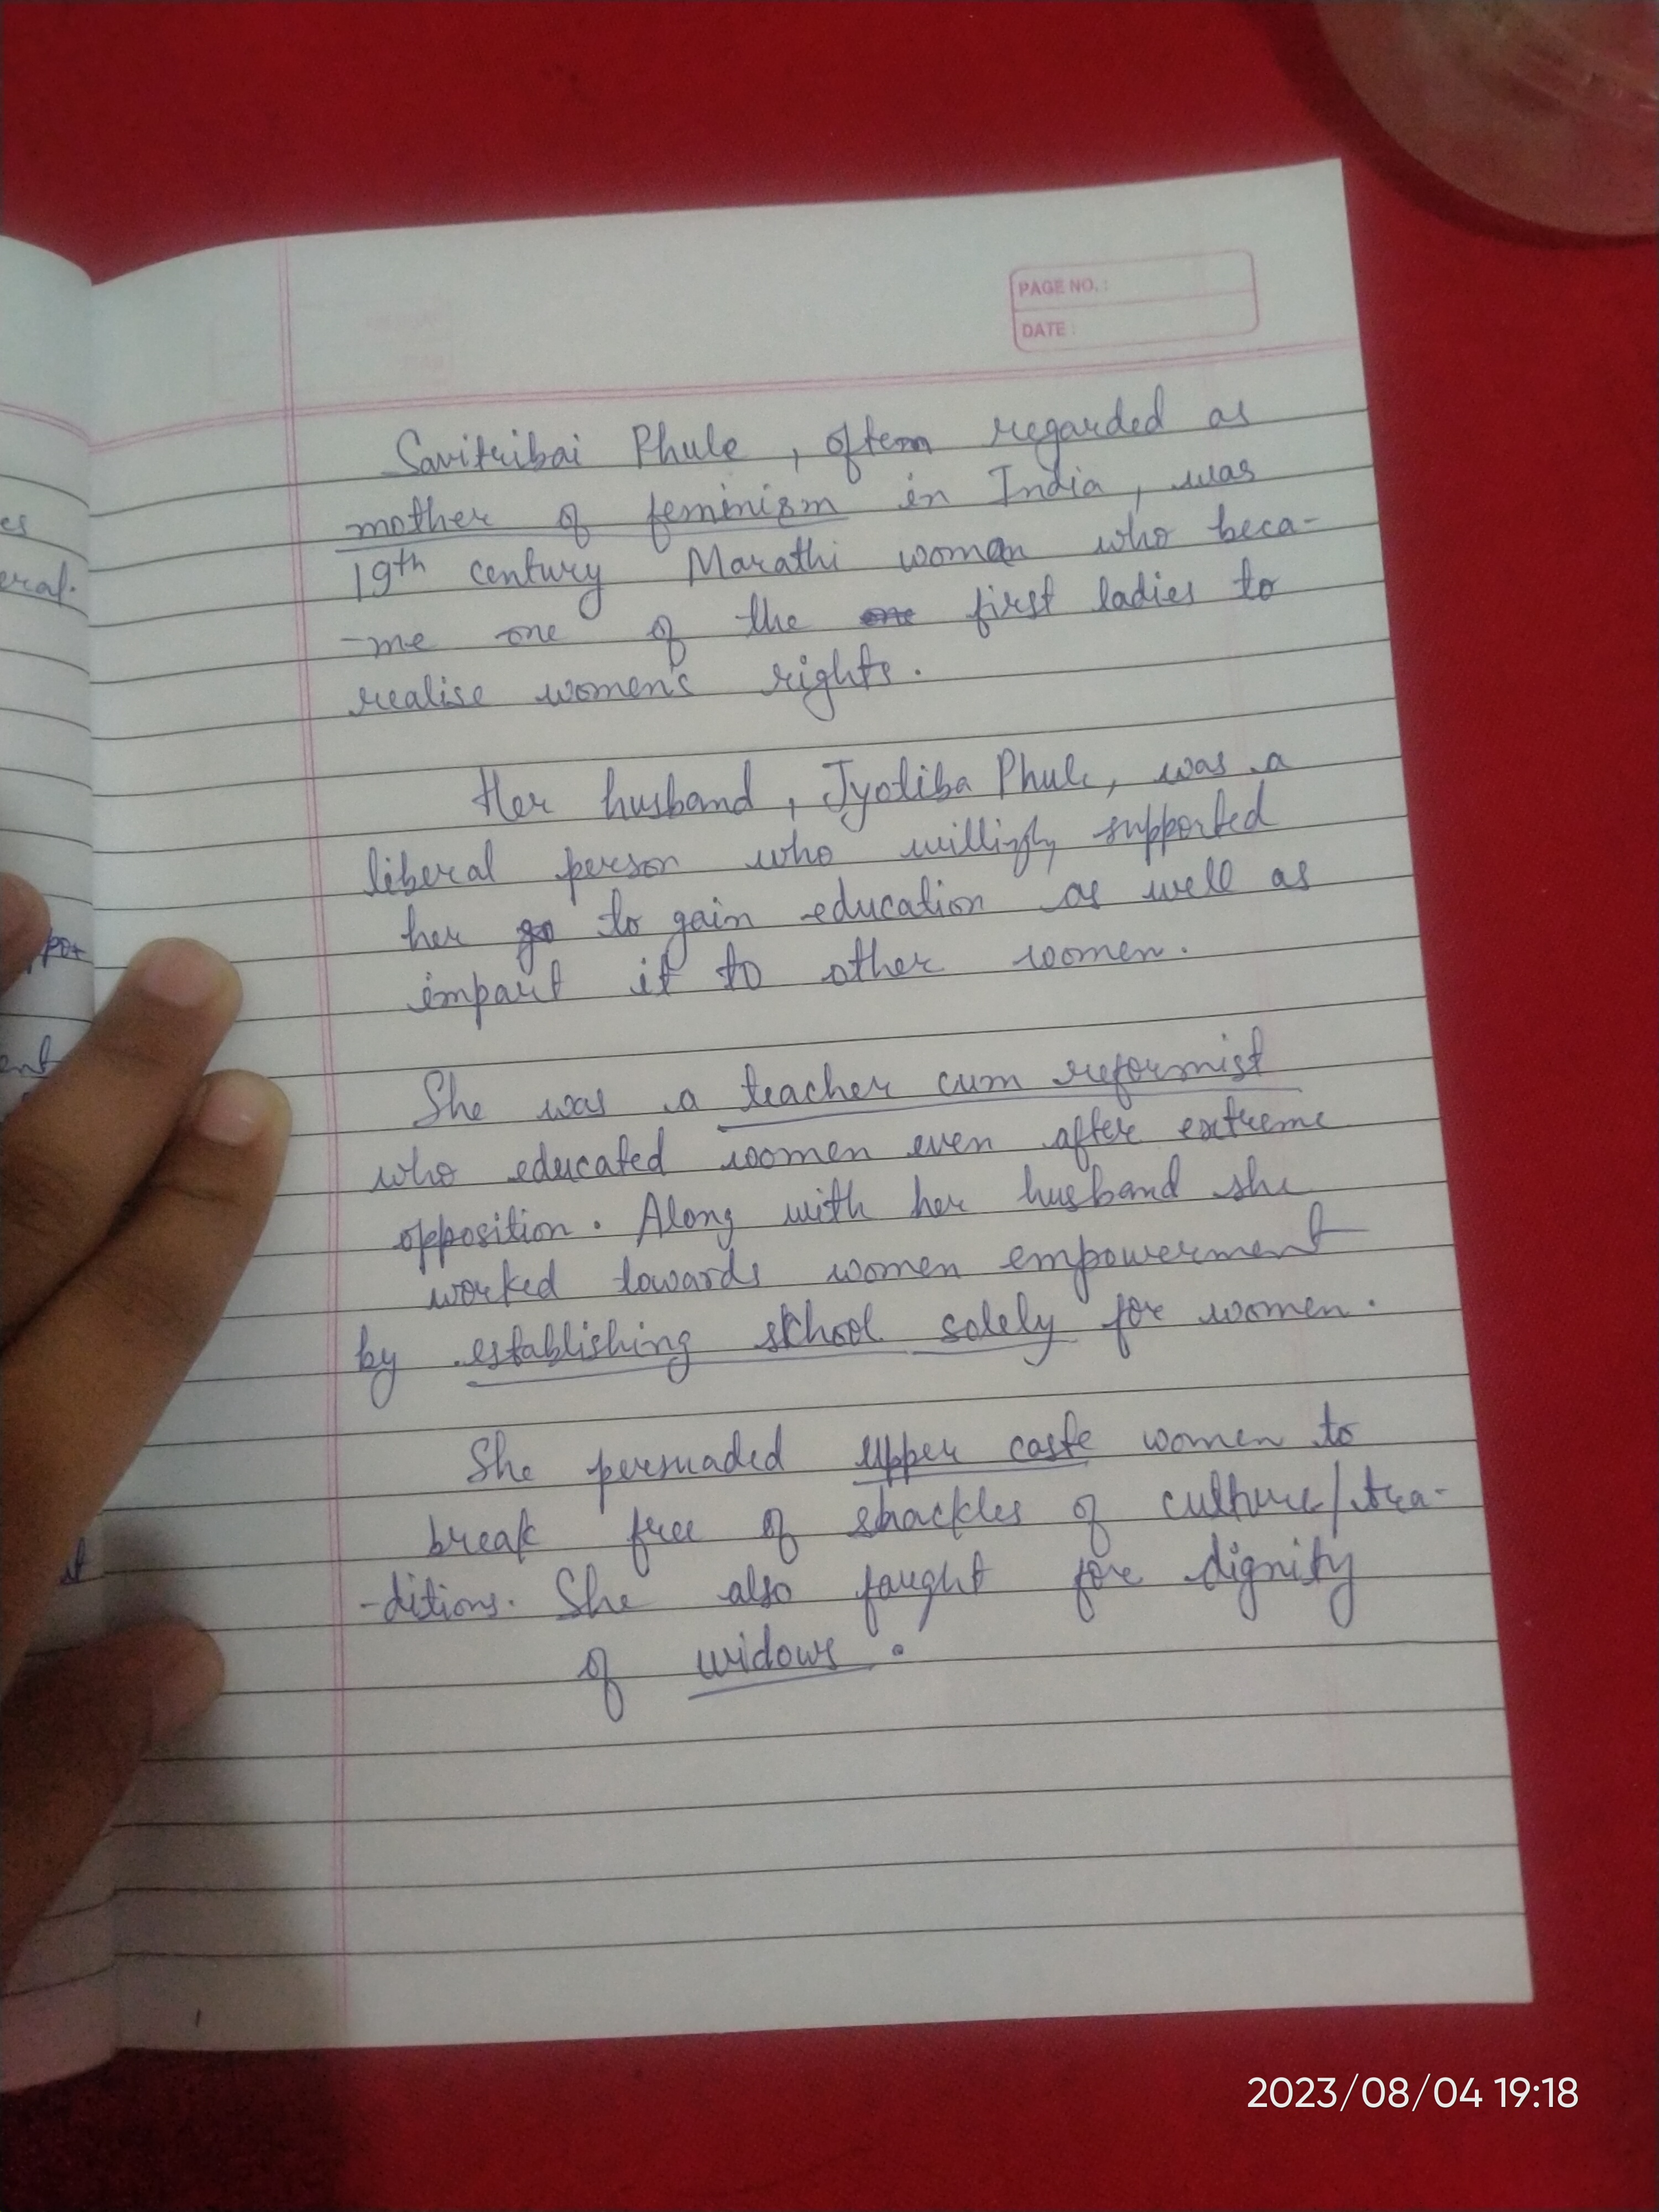 PAGE NO. :
DATE :
Savitribai Phule , often regarded as
mother of feminism in India , was
19th century Marathi woman who beca-
-me one of the one first ladies to
realise women's rights .
Her husband , Jyotiba Phule , was a
liberal person who willingly supported
her go to gain education as well as
impart it to other women .
She was a teacher cum reformist
who educated women even after extreme
opposition . Along with her husband she
worked towards women empowerment
by establishing school solely for women .
She persuaded upper caste women to
break free of shackles of culture/tra-
-ditions . She also faught for dignity
of widows .
es
eral .
ppor
ent
2023/08/04 19:18